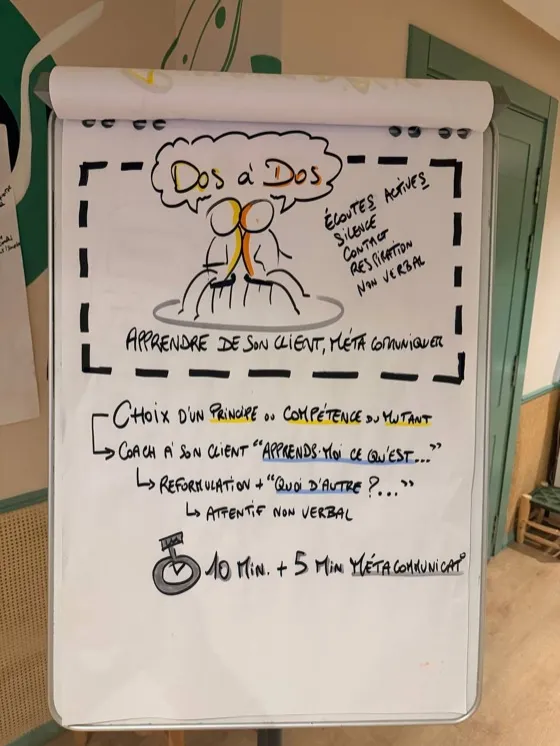 Dos à Dos
ÉCOUTES ACTIVES
SILENCE
CONTACT
RESPIRATION
NON VERBAL
APPRENDRE DE SON CLIENT, MÉTA COMUNIQUER
CHOIX D'UN PRINCIPE OU COMPÉTENCE DU MUTANT
COACH À SON CLIENT "APPRENDS-MOI CE QU'EST..."
REFORMULATION + "QUOI D'AUTRE ?..."
ATTENTIF NON VERBAL
10 MIN. + 5 MIN MÉTACOMMUNICAT°